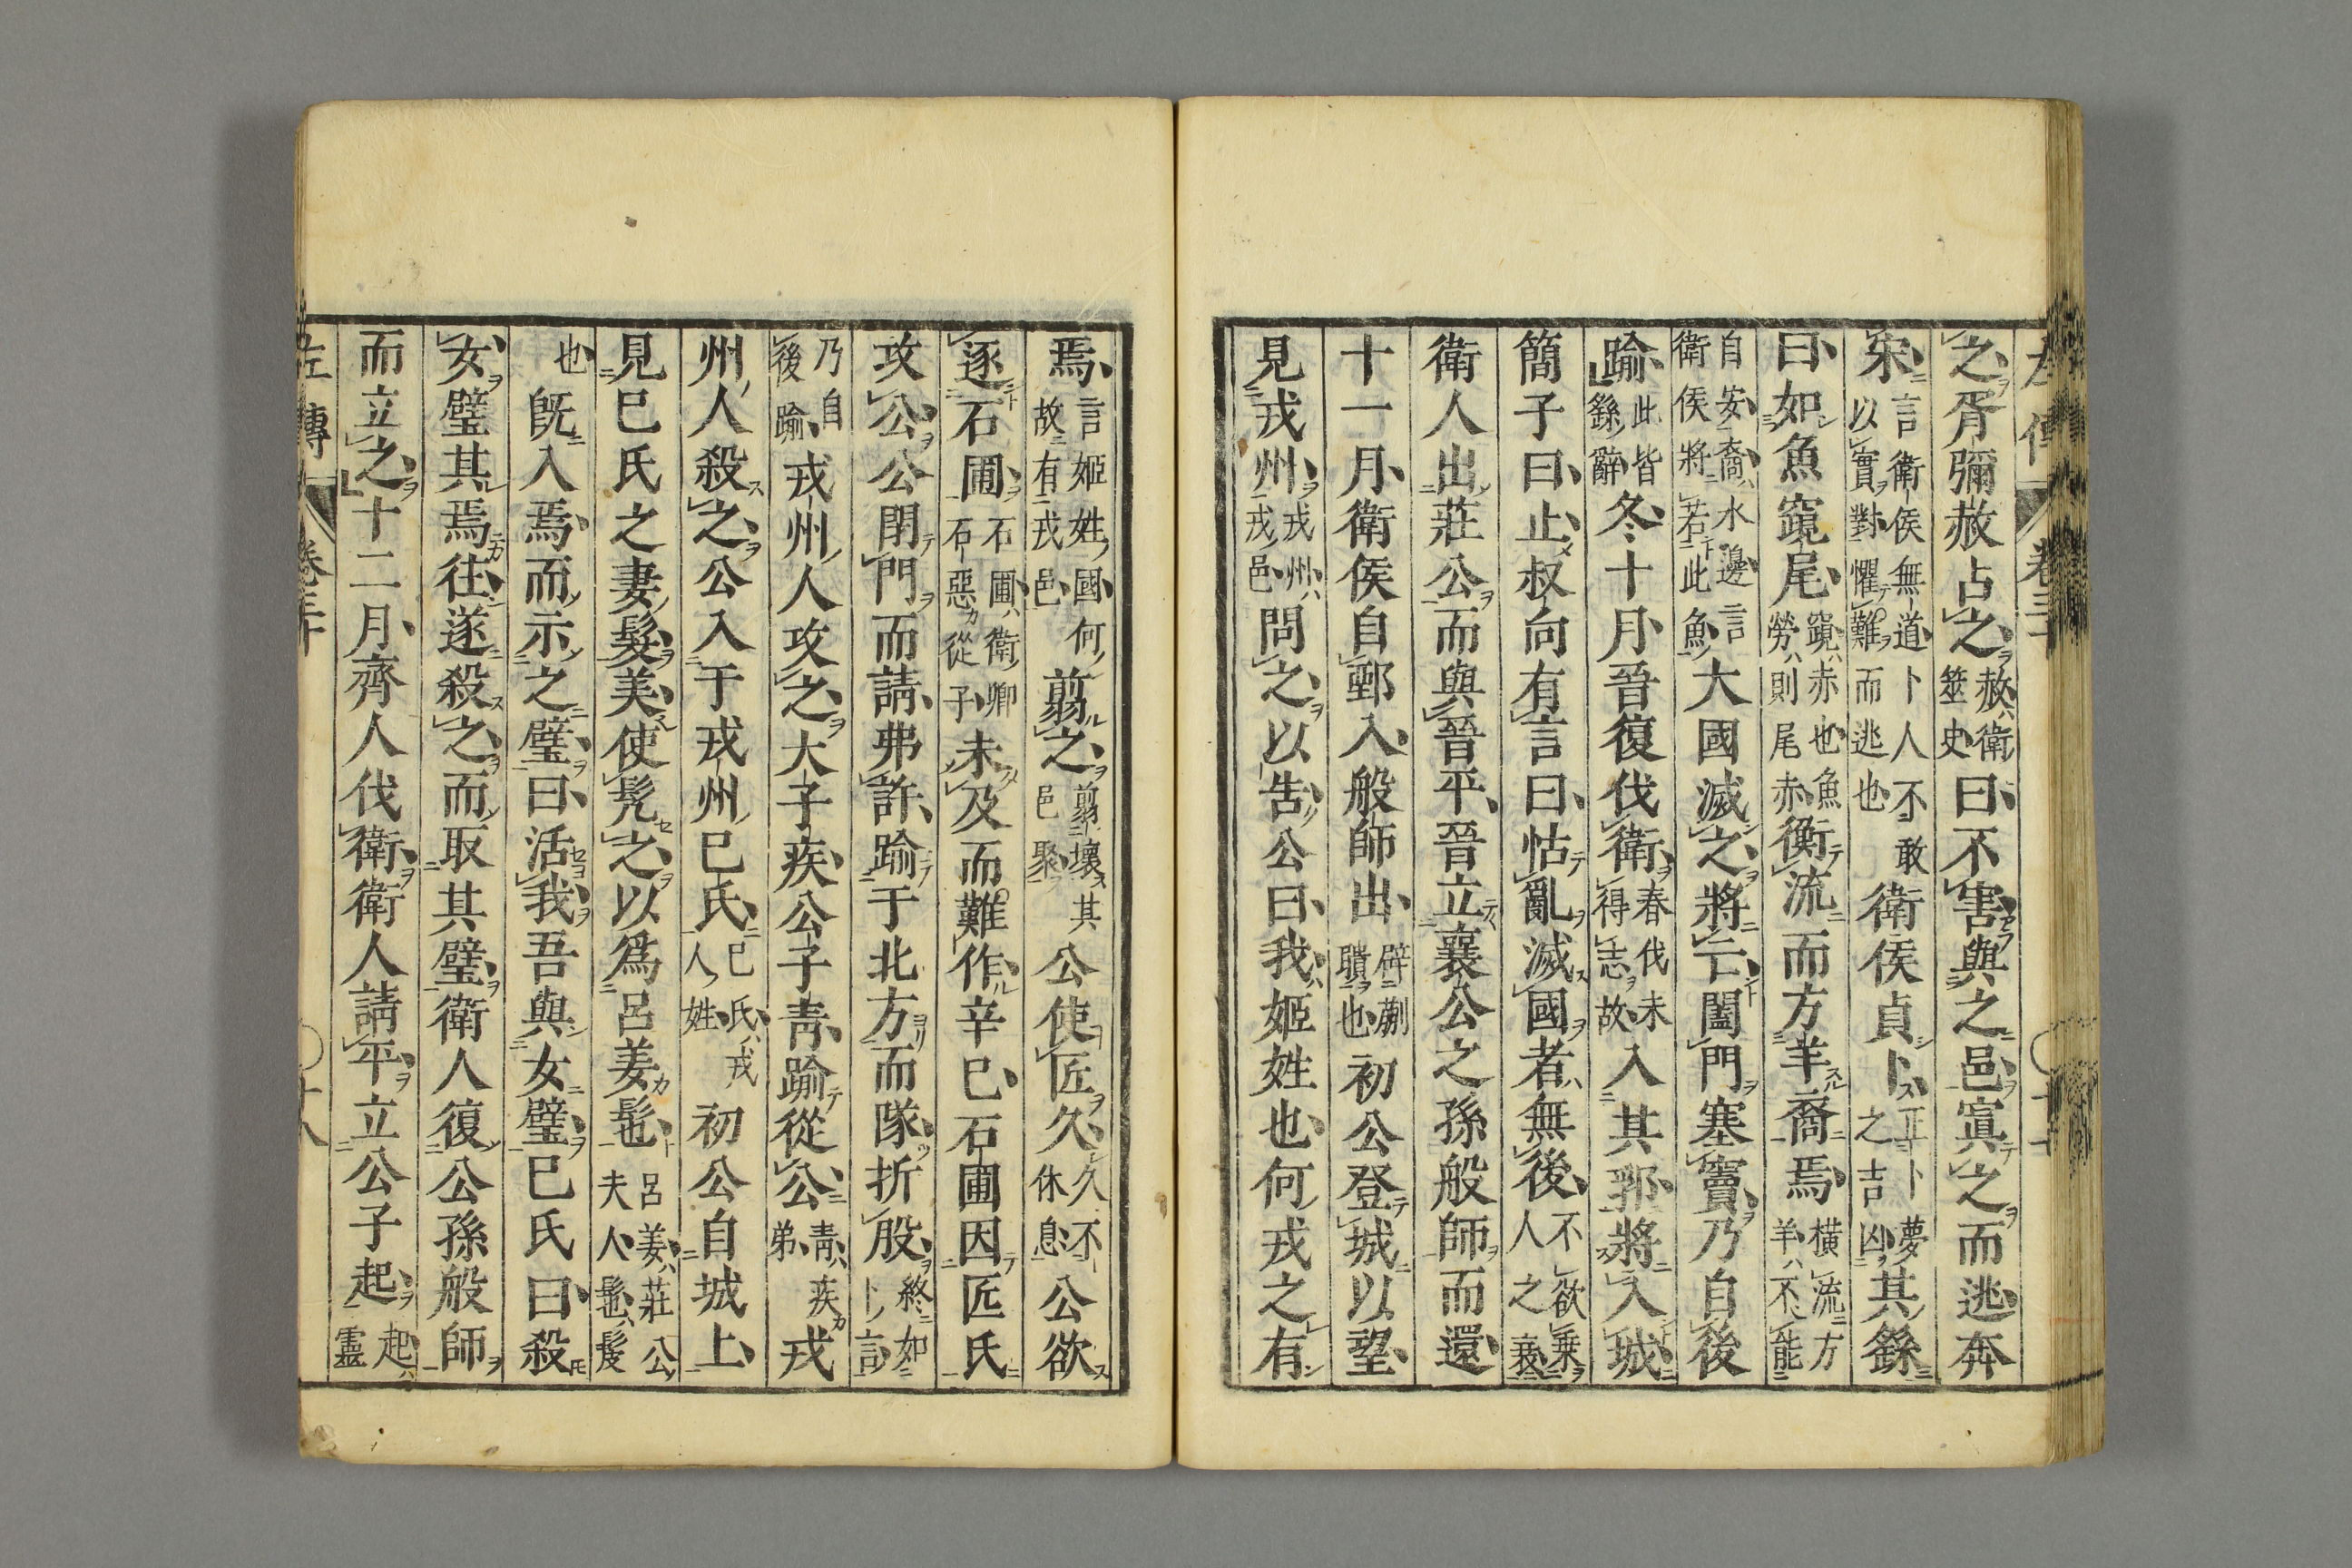 之胥彌赦占之赦衛筮史曰不害與之邑寘之而逃奔
宋言衛侯無道卜人不敢以實對懼難而逃也衛侯貞卜正卜夢之吉凶其繇
曰如魚竀尾竀赤也魚勞則尾赤衡流而方羊裔焉橫流方羊不能
自安裔水邊言衛侯將若此魚大國滅之將亡闔門塞竇乃自後
踰此皆繇辭冬十月晉復伐衛春伐未得志故入其郛將入城
簡子曰止叔向有言曰怙亂滅國者無後不欲乗人之衰
衛人出莊公而與晉平晉立襄公之孫般師而還
十一月衛侯自鄄入般師出辟蒯聵也初公登城以望
見戎州戎州戎邑問之以告公曰我姬姓也何戎之有
焉言姬姓國何故有戎邑翦之翦壞其邑聚公使匠久久不休息公欲
逐石圃石圃衛卿石惡從子未及而難作辛巳石圃因匠氏
攻公公閉門而請弗許踰于北方而隊折股終如卜言
乃自後踰戎州人攻之大子疾公子青踰從公青疾弟戎
州人殺之公入于戎州己氏己氏戎人姓初公自城上
見己氏之妻髮美使髡之以爲呂姜髢呂姜莊公夫人髢髲
也旣入焉而示之璧曰活我吾與女璧己氏曰殺
女璧其焉往遂殺之而取其璧衛人復公孫般師
而立之十二月齊人伐衛衛人請平立公子起起靈
左傳 卷三十 十八